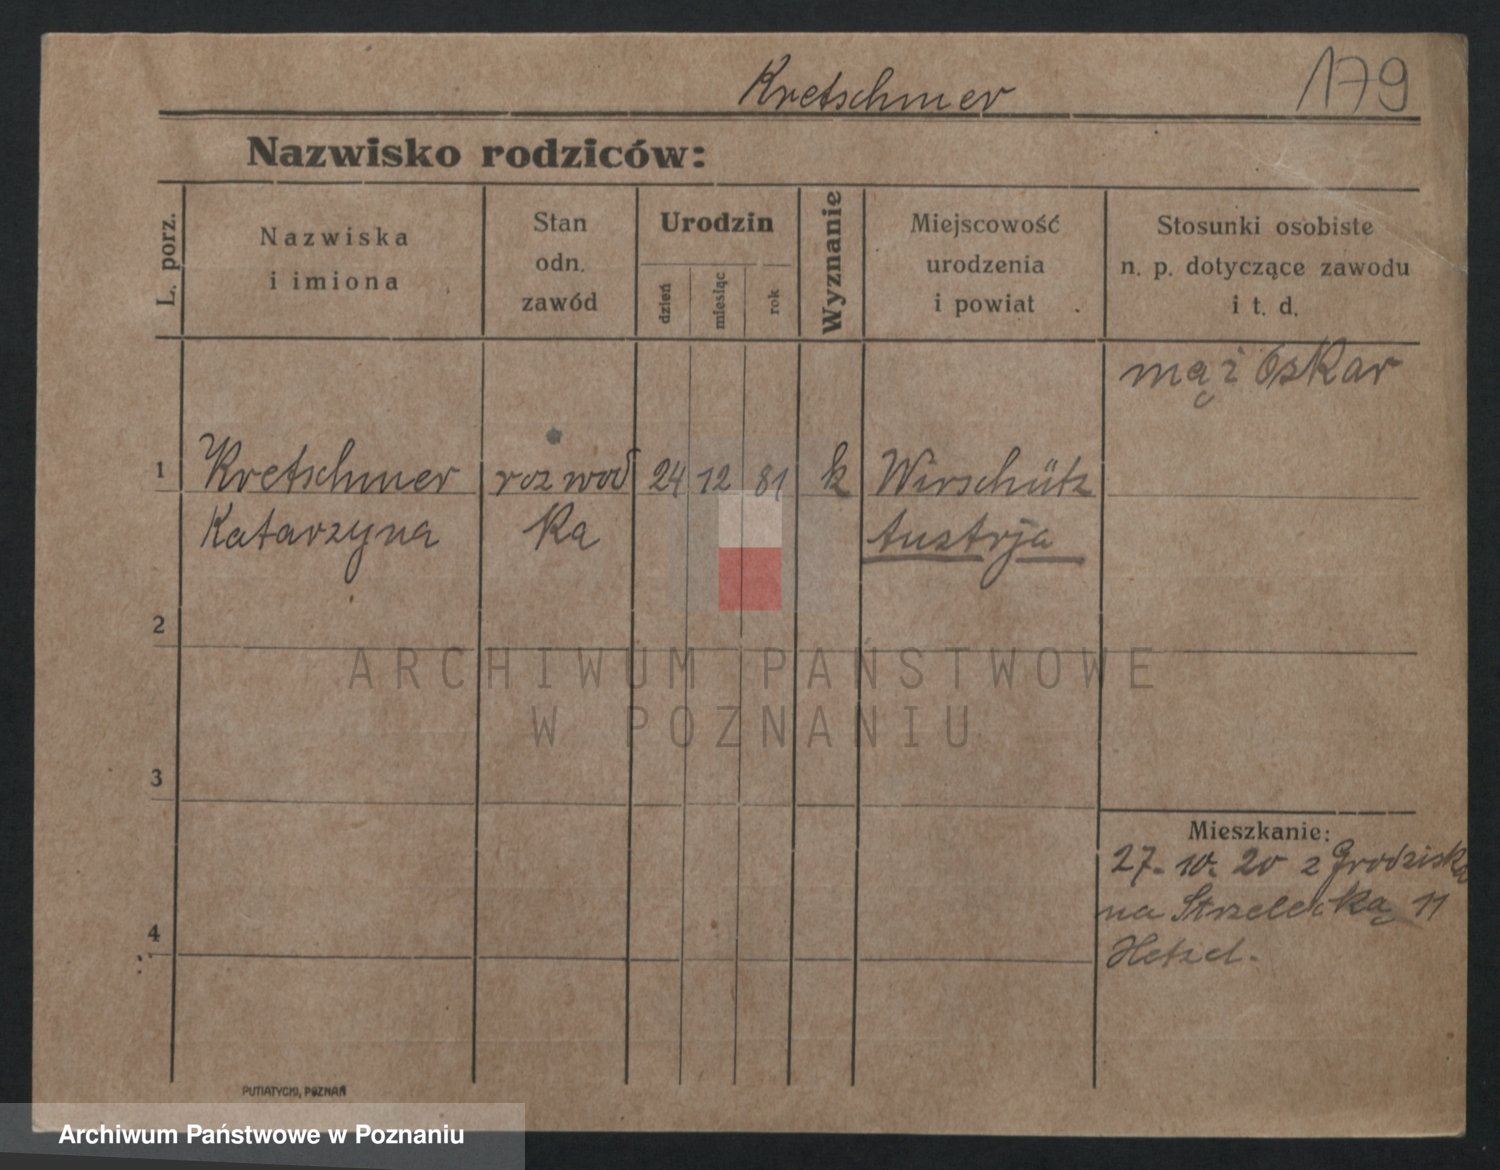 Kretschmer
179
Nazwisko rodziców:
L. porz.
Nazwiska
i imiona
Stan
odn.
zawód
Urodzin
dzień
miesiąc
rok
Wyznanie
Miejscowość
urodzenia
i powiat
Stosunki osobiste
n. p. dotyczące zawodu
i t. d.
mąż Oskar
1
Kretschmer
rozwod
24
12
81
k
Wirschütz
Katarzyna
ka
Austrja
2
ARCHIWUM PAŃSTWOWE
W POZNANIU
3
Mieszkanie:
27. 10. 20 z Grodziska
na Strzelecką 11
Hetzel.
4
PUTIATYCKI, POZNAŃ
Archiwum Państwowe w Poznaniu